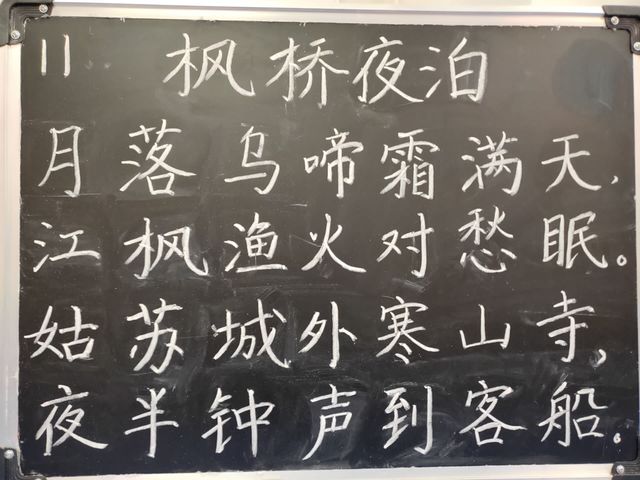 11 枫桥夜泊
月落乌啼霜满天,
江枫渔火对愁眠。
姑苏城外寒山寺,
夜半钟声到客船.